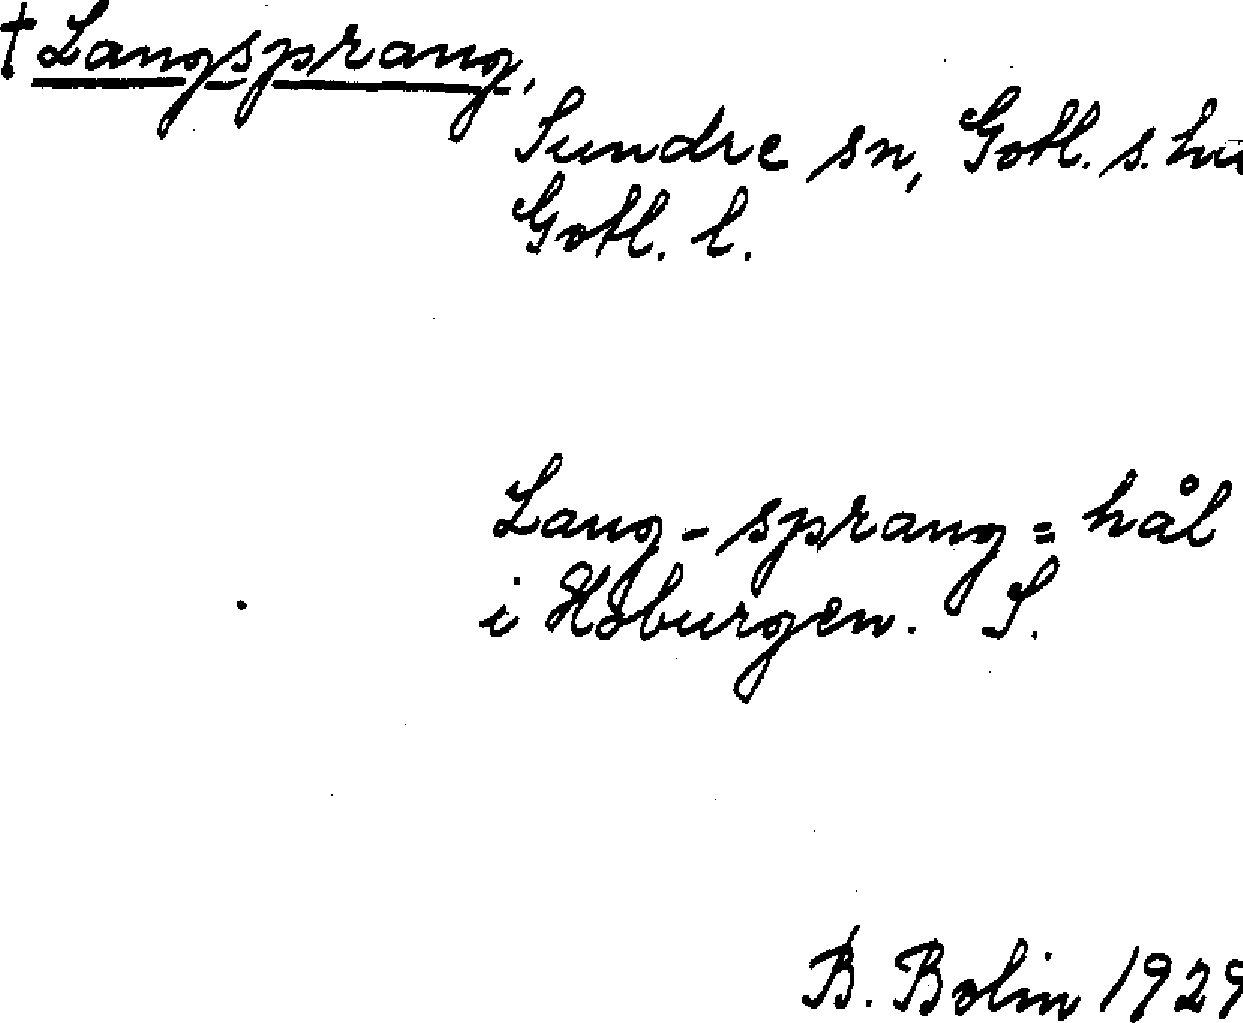 † Langsprang,
Sundre sn, Gotl. s. hd
Gotl. l.
Lang-sprang = hål
i Hoburgen. S.
B. Bolin 1929